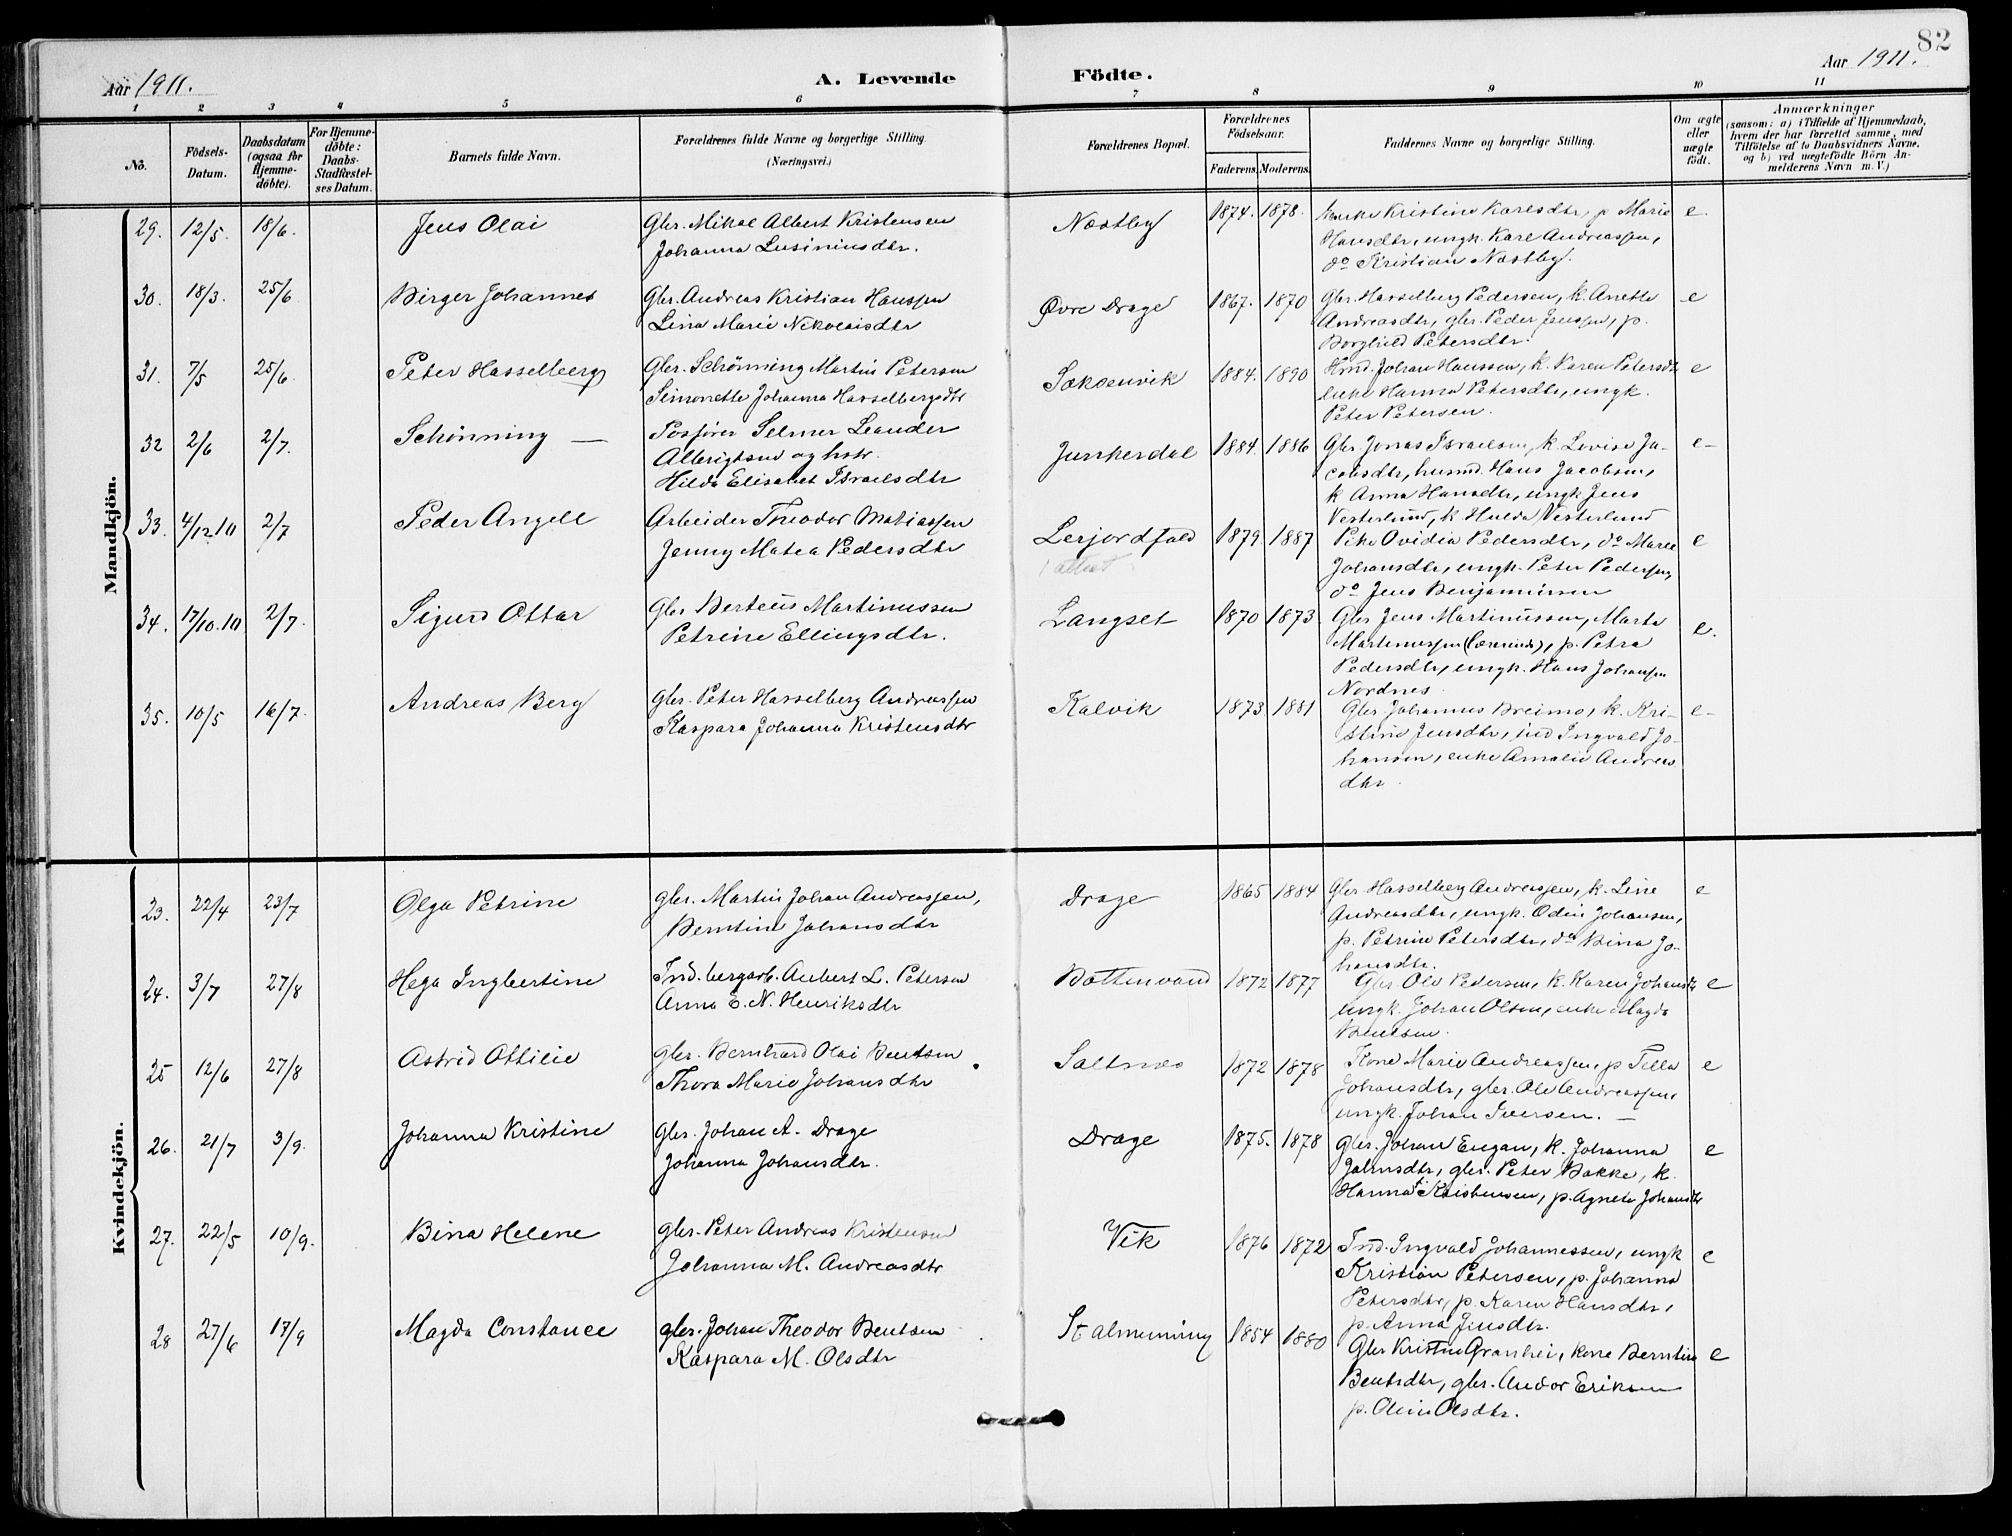 82
Aar 1911.
A. Levende Födte.
Aar 1911.
1 2 3 4 5 6 7 8 9 10 11
Nö.
Födsels-Datum.
Daabsdatum (ogsaa for Hjemme-döbte).
For Hjemme-döbte: Daabs-Stadfæstel-ses Datum.
Barnets fulde Navn.
Forældrenes fulde Navne og borgerlige Stilling. (Næringsvei.)
Forældrenes Bopæl.
Forældrenes Födselsaar.
Faderens. Moderens.
Faddernes Navne og borgerlige Stilling.
Om ægte eller uægte födt.
Anmærkninger
(saasom: a) i Tilfælde af Hjemmedaab,
hvem der har forrettet samme, med
Tilföielse af to Daabsvidners Navne,
og b) ved uægtefödte Börn An-
melderens Navn m. V.)
Mandkjön.
29. 12/5. 18/6. Jens Olai
Gbr. Mikal Albert Kristensen
Johanna Lusiniusdtr.
Næstby 1874. 1878.
Enke Kristine Karlsdtr, p. Marie
Hansdtr, ungk. Karl Andreassen,
do Kristian Næstby.
e.
30. 18/3. 25/6 Birger Johannes
Gbr. Andreas Kristian Hanssen
Lina Marie Nikolaisdtr
Øvre Drage 1867. 1870
Gbr. Hasselberg Pedersen, k. Anette
Andreasdtr, gbr. Peder Jenssen, p.
Borghild Petersdtr.
e
31. 7/5 25/6. Peter Hasselberg
Gbr. Schønning Martin Petersen
Simonette Johanna Hasselbergsdtr
Soksenvik 1884. 1890
Hmd. Johan Hanssen, k. Karen Petersdtr
enke Hanna Petersdtr, ungk.
Peter Petersen.
e
32 2/6 2/7. Schønning —
Selmer Leander
Albrigtsen og hstr.
Hilda Elisabet Israelsdtr
Junkerdal 1884. 1886
Gbr. Jonas Israelsen, k. Lovise Ja-
cobsdtr, husmd. Hans Jacobsen,
k Anna Hansdtr, ungk Jens
Vesterlund, k Hulda Vesterlund
e-
33. 4/12.10 2/7 Peder Angell
Arbeider Theodor Matiassen
Jenny Matea Pedersdtr
Lerjordfald 1879 1887
Pike Ovidia Pedersdtr, do Marie
Johansdtr, ungk. Peter Pedersen,
do Jens Benjaminsen
e
34. 17/10.10 2/7. Sigurd Ottar
Gbr Berteus Martinussen
Petrine Ellingsdtr.
Langset 1870 1873
Gbr Jens Martinussen, Marta
Martinussen (Lærerinde), p. Petra
Pedersdtr, ungk. Hans Johansen
Nordnes.
e.
35. 10/5 16/7. Andreas Berg
gbr. Peter Hasselberg Andreassen
Kaspara Johanna Kristensdtr
Kalvik 1873 1881
Gbr. Johannes Breimo, k. Kri-
stine Jensdtr, ind Ingvald Jo-
hansen, enke Amalie Andreas
dtr.
e-
Kvindekjön.
23. 22/4 23/7 Olga Petrine
gbr. Martin Johan Andreassen,
Berntine Johansdtr
Drage 1865 1884
Gbr. Hasselberg Andreassen, k. Line
Andreasdtr, ungk. Odin Johansen,
p. Petrine Petersdtr, do Bina Jo-
hansdtr.
e
24. 3/7 27/8 Hega Ingbertine
Ind. bergarb. Anbert L. Petersen
Anna E. N. Henriksdtr
Bottenvand 1872 1877
Gbr. Ole Pedersen, k. Karen Johansdtr
ungk. Johan Olsen, enke Magda
Bentsen.
e
25 12/6 27/8 Astrid Ottilie
gbr. Bernhard Olai Bentsen
Thora Marie Johansdtr
Saltnes 1872 1878
Kone Marie Andreassen, p Tella
Johansdtr, gbr. Ole Andreassen,
ungk. Johan Iversen. —
e
26. 21/7 3/9. Johanna Kristine
gbr. Johan A. Drage
Johanna Johansdtr.
Drage 1875. 1878
Gbr. Johan Engan, k. Johanna
Johnsdtr, gbr. Peter Bakke, k.
Hanna Kristensen, p. Agneta Johansdtr
e
27. 22/5 10/9. Bina Helene
gbr. Peter Andreas Kristensen
Johanna M. Andreasdtr
Vik 1876 1872
Ind. Ingvald Johannessen, ungk
Kristian Petersen, p. Johanna
Petersdtr, p. Karen Hansdtr,
p. Anna Jensdtr.
e
28 27/6 17/9 Magda Constance
gbr. Johan Theodor Bentsen
Kaspara M. Olsdtr
St almenning 1854 1880
Gbr Kristen Granhei, kone Berntine
Bentsdtr, gbr. Andor Eriksen
p. Oline Olsdtr.
e